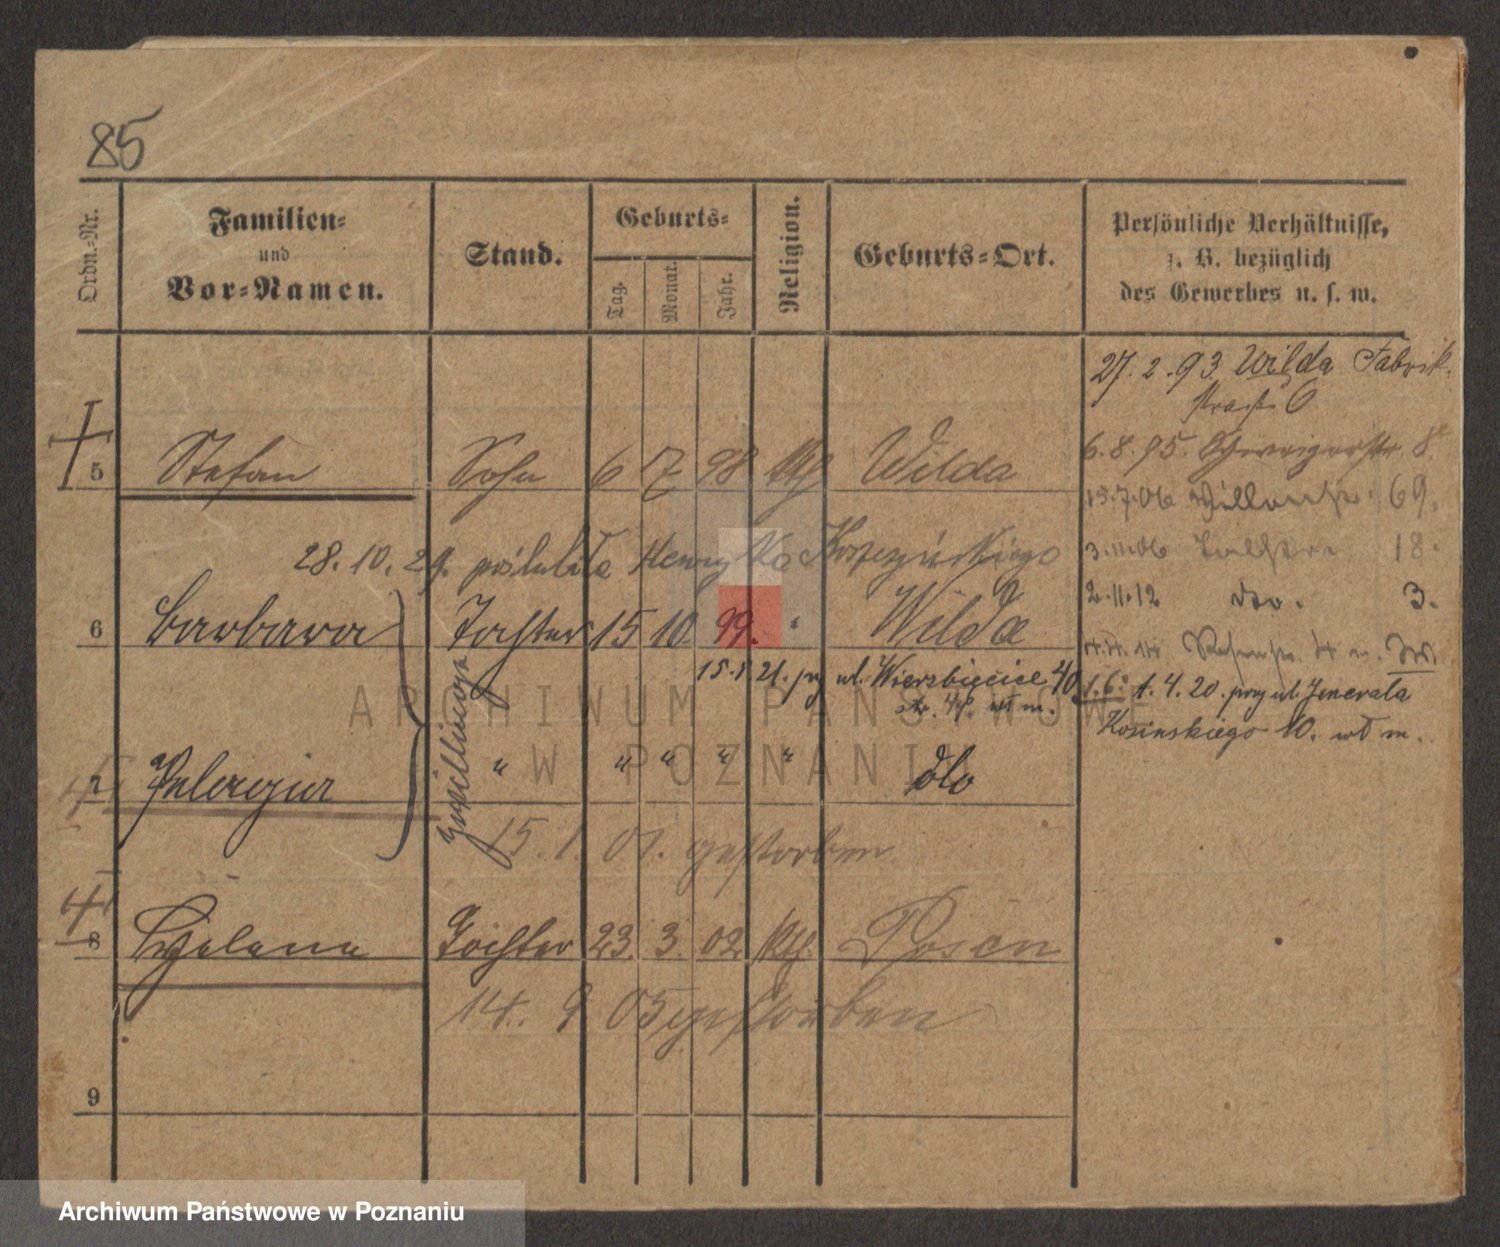 85
Ordn.-Nr.
Familien-
und
Vor-Namen.
Stand.
Geburts-
Tag.
Monat.
Jahr.
Religion.
Geburts-Ort.
Persönliche Verhältnisse,
z. B. bezüglich
des Gewerbes u. s. w.
27. 2. 93 Wilda Fabrik-
6
5 Stefan Sohn 6 7 98 kth Wilda
6. 8. 95. 8
15.7.06 69.
28. 10. 29. poślubiła Henryka
3.11.06 18.
2.11.12 do. 3.
6 Barbara Tochter 15 10 99. " Wilda
Zwillinge
15.1.21. przy ul. Wierzbięcice 40
str. wł m.
1. 4. 20. przy ul. Jenerała
Kosinskiego 10. wł m.
7 Pelagia " " " " " dto
15. 1. 01. gestorben
8 Helena Tochter 23. 3. 02 kth. Posen
14. 9 05 gestorben
9
ARCHIWUM PAŃSTWOWE
W POZNANIU
Archiwum Państwowe w Poznaniu